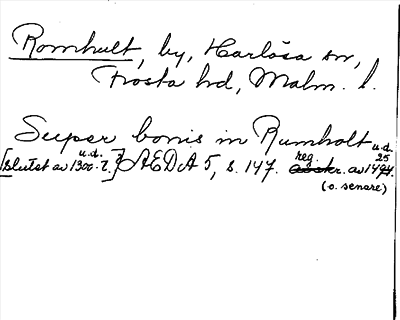 Romhult, by, Harlösa sn,
Frosta hd, Malm. l.
Super bonis in Rumholt u.d.
[slutet av 1300-t.] u.d. ÆDA 5, s. 147. reg. av 1425
(o. senare)